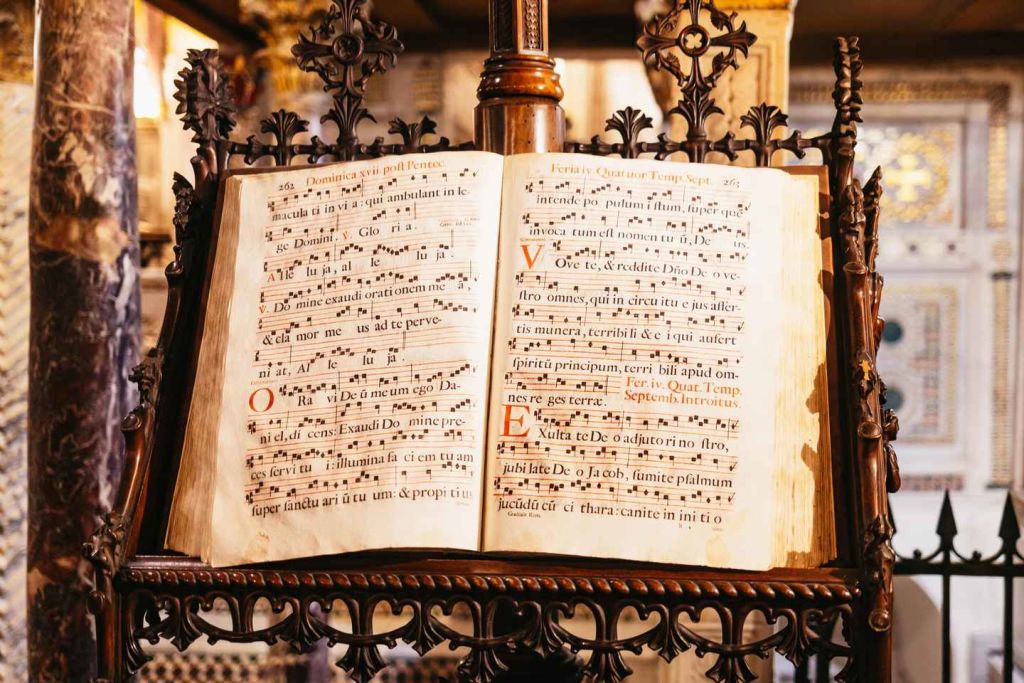 262 Dominica xvii. post Pentec.
macula ti in vi a: qui ambulant in le-
ge Domini. ℣. Glo ri a.
A lle lu ja, al le lu ja.
℣. Do mine exaudi orationem me ā,
& cla mor me us ad te perve-
ni at, Al le lu ja.
O Ra vi De ū me um ego Da-
ni el, di cens: Exaudi Do mine pre-
ces servi tu i: illumina fa ci em tu am
super sanctu ari ū tu um: & propi ti us
Feria iv. Quatuor Temp. Sept. 263
intende po pulum istum, super quē
invoca tum est nomen tu ū, De us.
V Ove te, & reddite Dño De o ve-
stro omnes, qui in circu itu e jus affer-
tis munera, terribi li & e i qui aufert
spiritū principum, terri bili apud om-
nes re ges terræ. Fer. iv. Quat. Temp.
Septemb. Introitus.
E Xulta te De o adjuto ri no stro,
jubi late De o Ja cob, sumite psalmum
jucūdū cū ci thara: canite in ini ti o
Graduale Rom.